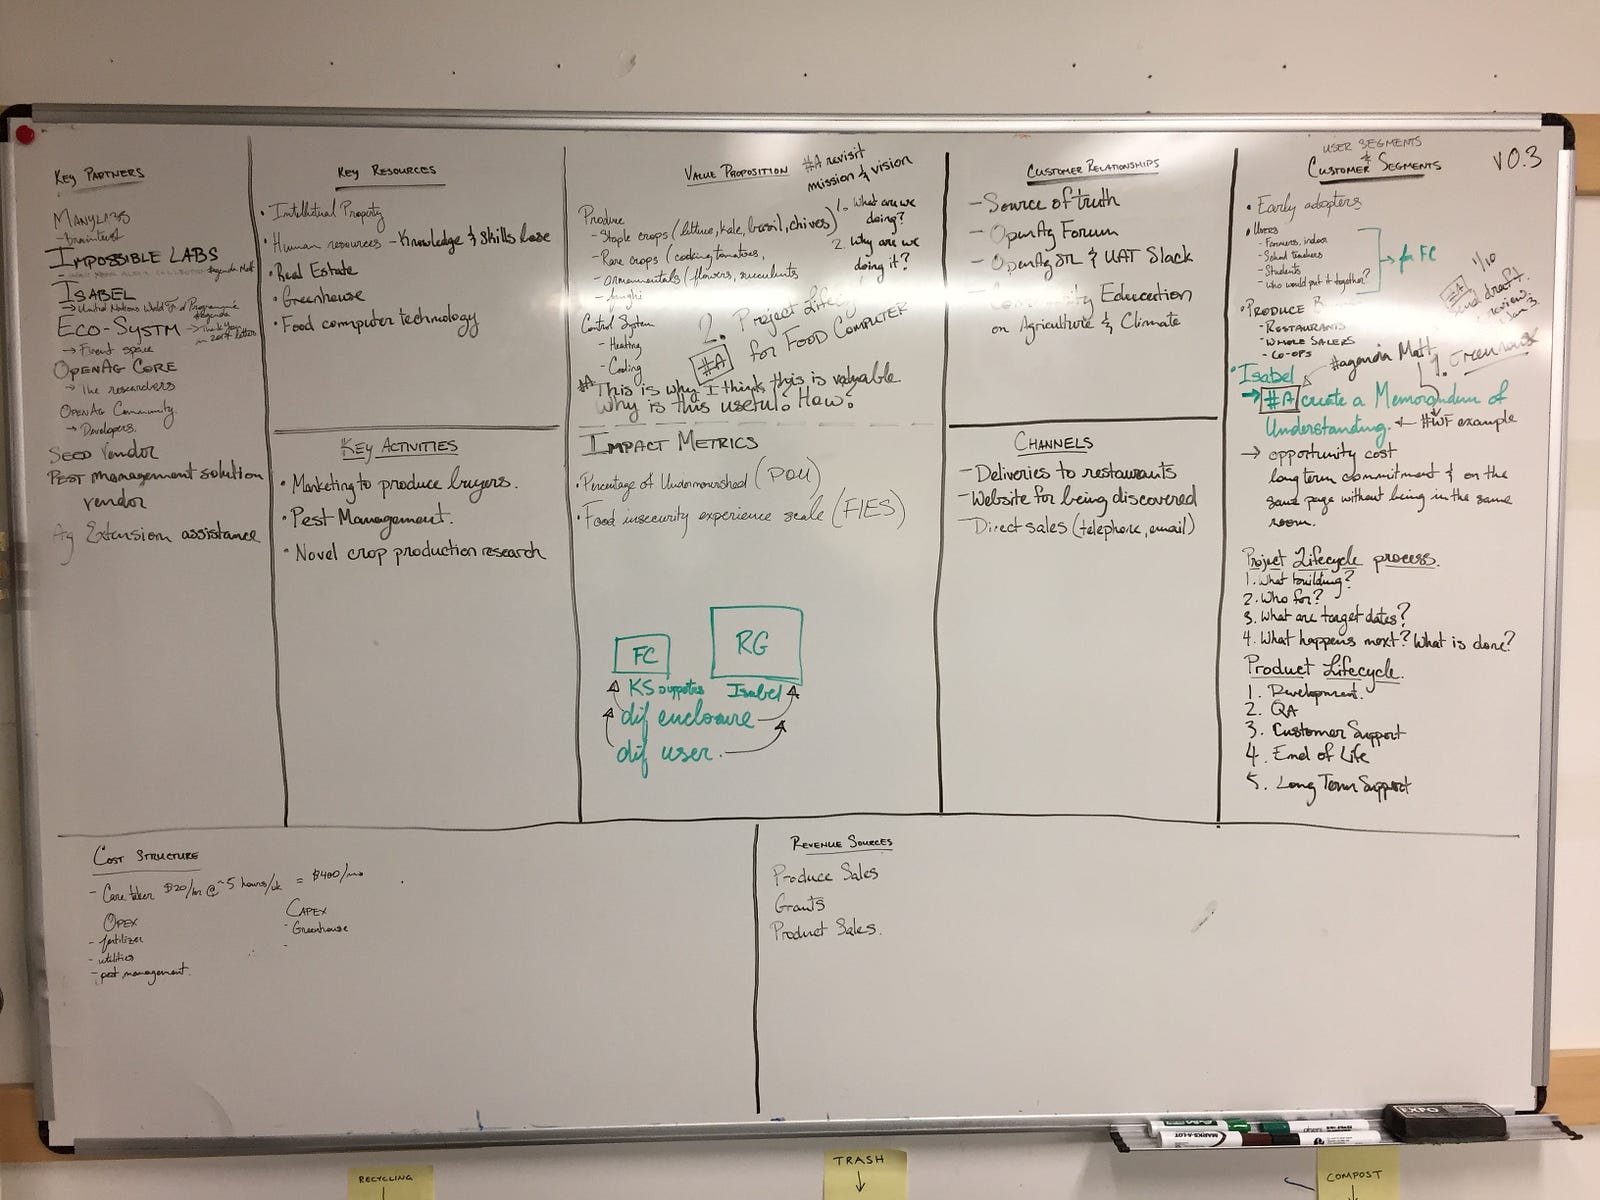 KEY PARTNERS
MANYLABS
- Braintrust
IMPOSSIBLE LABS
#agenda Matt
ISABEL
→ United Nations World Food Programme
#agenda
ECO-SYSTM → Thank You
in 2017 letters
→ Finent space
OPENAG CORE
→ The researchers
OPENAG Community
→ Developers.
SEED Vendor
PEST management solution
vendor
Ag Extension assistance
KEY RESOURCES
• Intellectual Property
• Human resources - Knowledge & Skills base
• Real Estate
• Greenhouse
• Food computer technology
KEY ACTIVITIES
• Marketing to produce buyers.
• Pest Management.
• Novel crop production research
VALUE PROPOSITION
#A revisit
mission & vision
1. What are we
doing?
2. Why are we
doing it?
Produce
- Staple crops (lettuce, kale, basil, chives)
- Rare crops (cooking tomatoes,
- ornamentals (flowers, succulents
- funghi
Control System
- Heating
- Cooling
2. Project Lifecycle
#A for FOOD COMPUTER
#A This is why I think this is valuable
Why is this useful? How?
IMPACT METRICS
• Percentage of Undernourished (POU)
• Food insecurity experience scale (FIES)
FC
RG
KS supporters Isabel
dif enclosure
dif user.
CUSTOMER RELATIONSHIPS
- Source of truth
- OpenAg Forum
- OpenAg STL & UAT Slack
- Community Education
on Agriculture & Climate
CHANNELS
- Deliveries to restaurants
- Website for being discovered
- Direct sales (telephone, email)
USER SEGMENTS
&
CUSTOMER SEGMENTS
V0.3
• Early adopters
• Users
- Farmers, indoor
- School teachers
- Students
- Who would put it together?
→ for FC
#A 1/10
draft.
review.
Jan 3.
• PRODUCE
- RESTAURANTS
- WHOLE SALERS
- CO-OPS
#agenda Matt
1. Greenhouse
• Isabel
→ #A create a Memorandum of
Understanding. ← #WF example
→ opportunity cost
long term commitment & on the
same page without being in the same
room.
Project Lifecycle process.
1. What building?
2. Who for?
3. What are target dates?
4. What happens next? What is done?
Product Lifecycle.
1. Development.
2. QA
3. Customer Support
4. End of Life
5. Long Term Support
COST STRUCTURE
- Care taker $20/hr @ ~5 hours/wk = $400/mo
OPEX
- fertilizer
- utilities
- pest management.
CAPEX
- Greenhouse
-
REVENUE SOURCES
Produce Sales
Grants
Product Sales.
EXPO
MARKS-A-LOT
RECYCLING
↓
TRASH
↓
COMPOST
↓